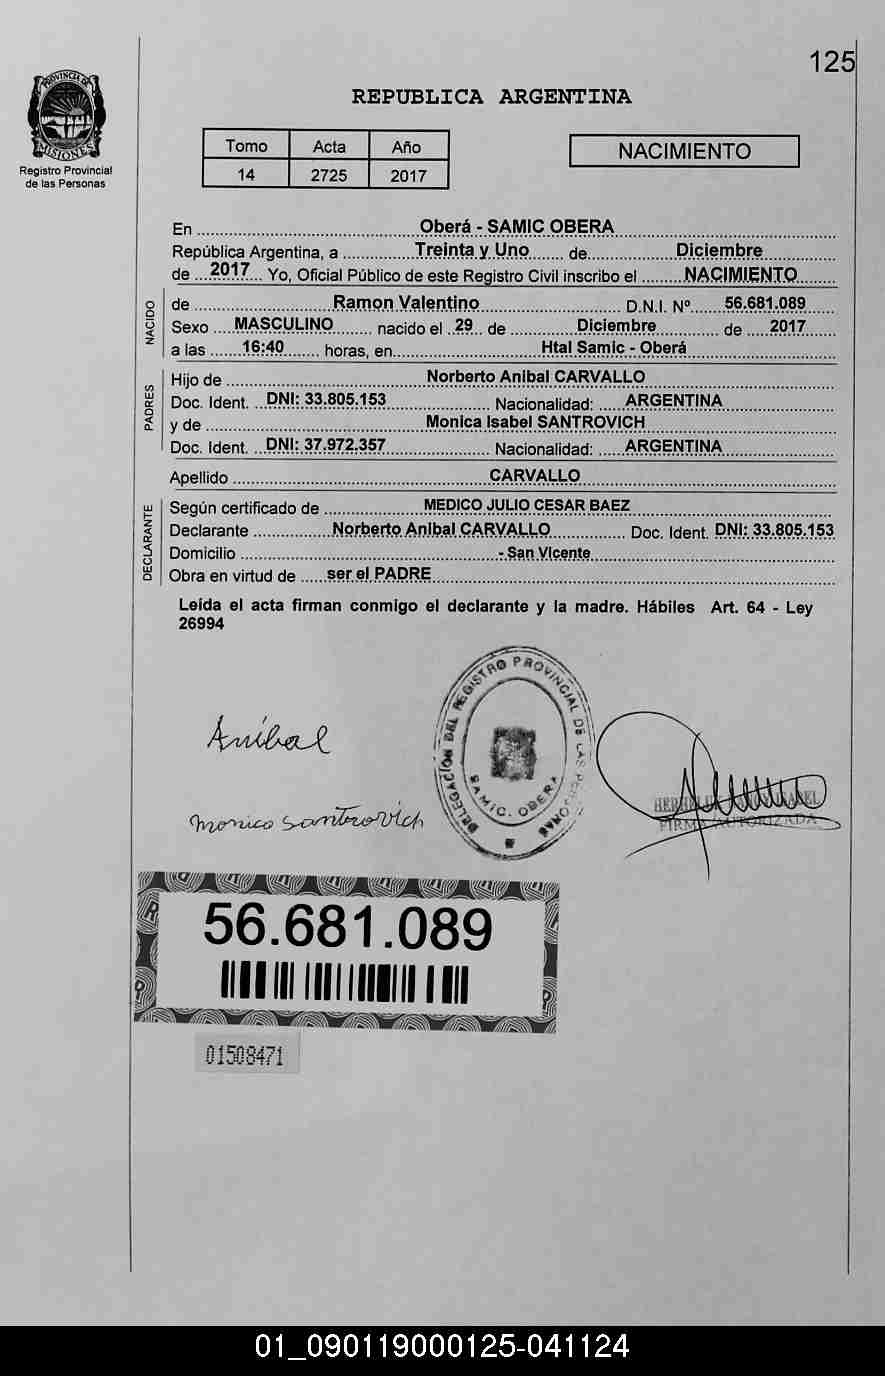 125
PROVINCIA DE
MISIONES
Registro Provincial
de las Personas
REPUBLICA ARGENTINA
Tomo Acta Año
14 2725 2017
NACIMIENTO
En Oberá - SAMIC OBERA
República Argentina, a Treinta y Uno de Diciembre
de 2017 Yo, Oficial Público de este Registro Civil inscribo el NACIMIENTO
NACIDO
de Ramon Valentino D.N.I. Nº 56.681.089
Sexo MASCULINO nacido el 29 de Diciembre de 2017
a las 16:40 horas, en Htal Samic - Oberá
PADRES
Hijo de Norberto Anibal CARVALLO
Doc. Ident. DNI: 33.805.153 Nacionalidad: ARGENTINA
y de Monica Isabel SANTROVICH
Doc. Ident. DNI: 37.972.357 Nacionalidad: ARGENTINA
Apellido CARVALLO
DECLARANTE
Según certificado de MEDICO JULIO CESAR BAEZ
Declarante Norberto Anibal CARVALLO Doc. Ident. DNI: 33.805.153
Domicilio - San Vicente
Obra en virtud de ser el PADRE
Leída el acta firman conmigo el declarante y la madre. Hábiles Art. 64 - Ley
26994
DELEGACION DEL REGISTRO PROVINCIAL DE LAS PERSONAS
SAMIC. OBERA
Aníbal
Monica Santrovich
ISABEL
FIRMA AUTORIZADA
56.681.089
01508471
01_090119000125-041124